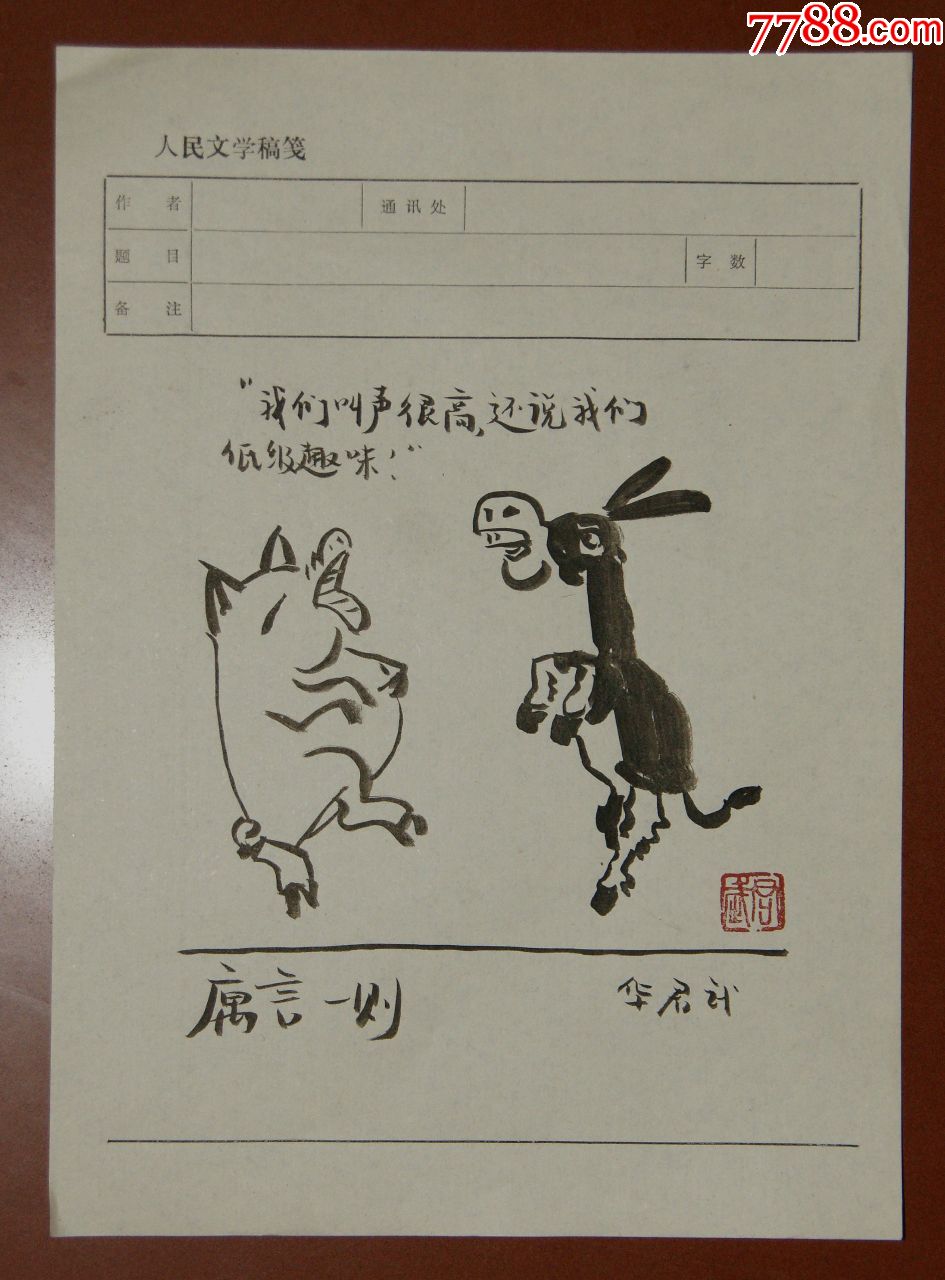 7788.com
人民文学稿笺
作者
通讯处
题目
字数
备注
"我们叫声很高,还说我们
低级趣味!"
君武
寓言一则
华君武